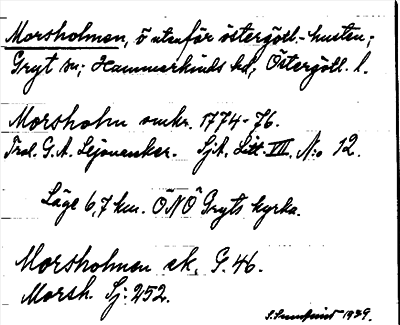 Morsholmen, ö utanför östergötl.-kusten;
Gryt sn; Hammarkinds hd; Östergötl. l.
Morsholm omkr. 1774-76.
G. A. Lejonanckar. SjA. Litt. III. N:o 12.
Läge 6,7 km. ÖNÖ Gryts kyrka.
Morsholmen ek. G. 46.
Morsh. Sj: 252.
1939.